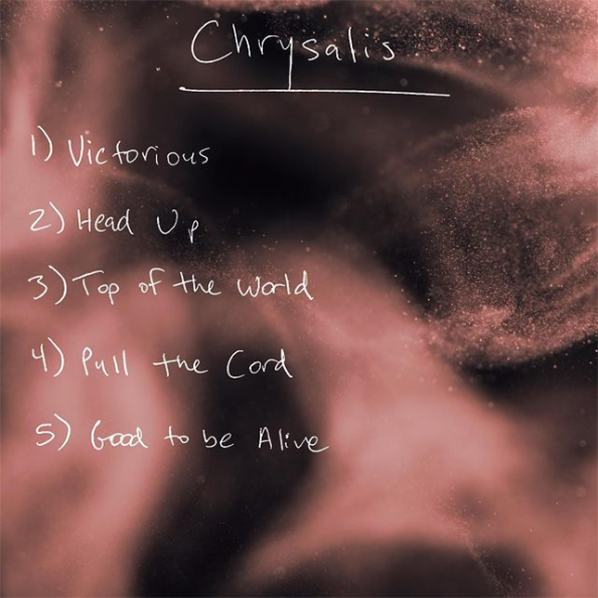 Chrysalis
1) Victorious
2) Head Up
3) Top of the World
4) Pull the Cord
5) Good to be Alive